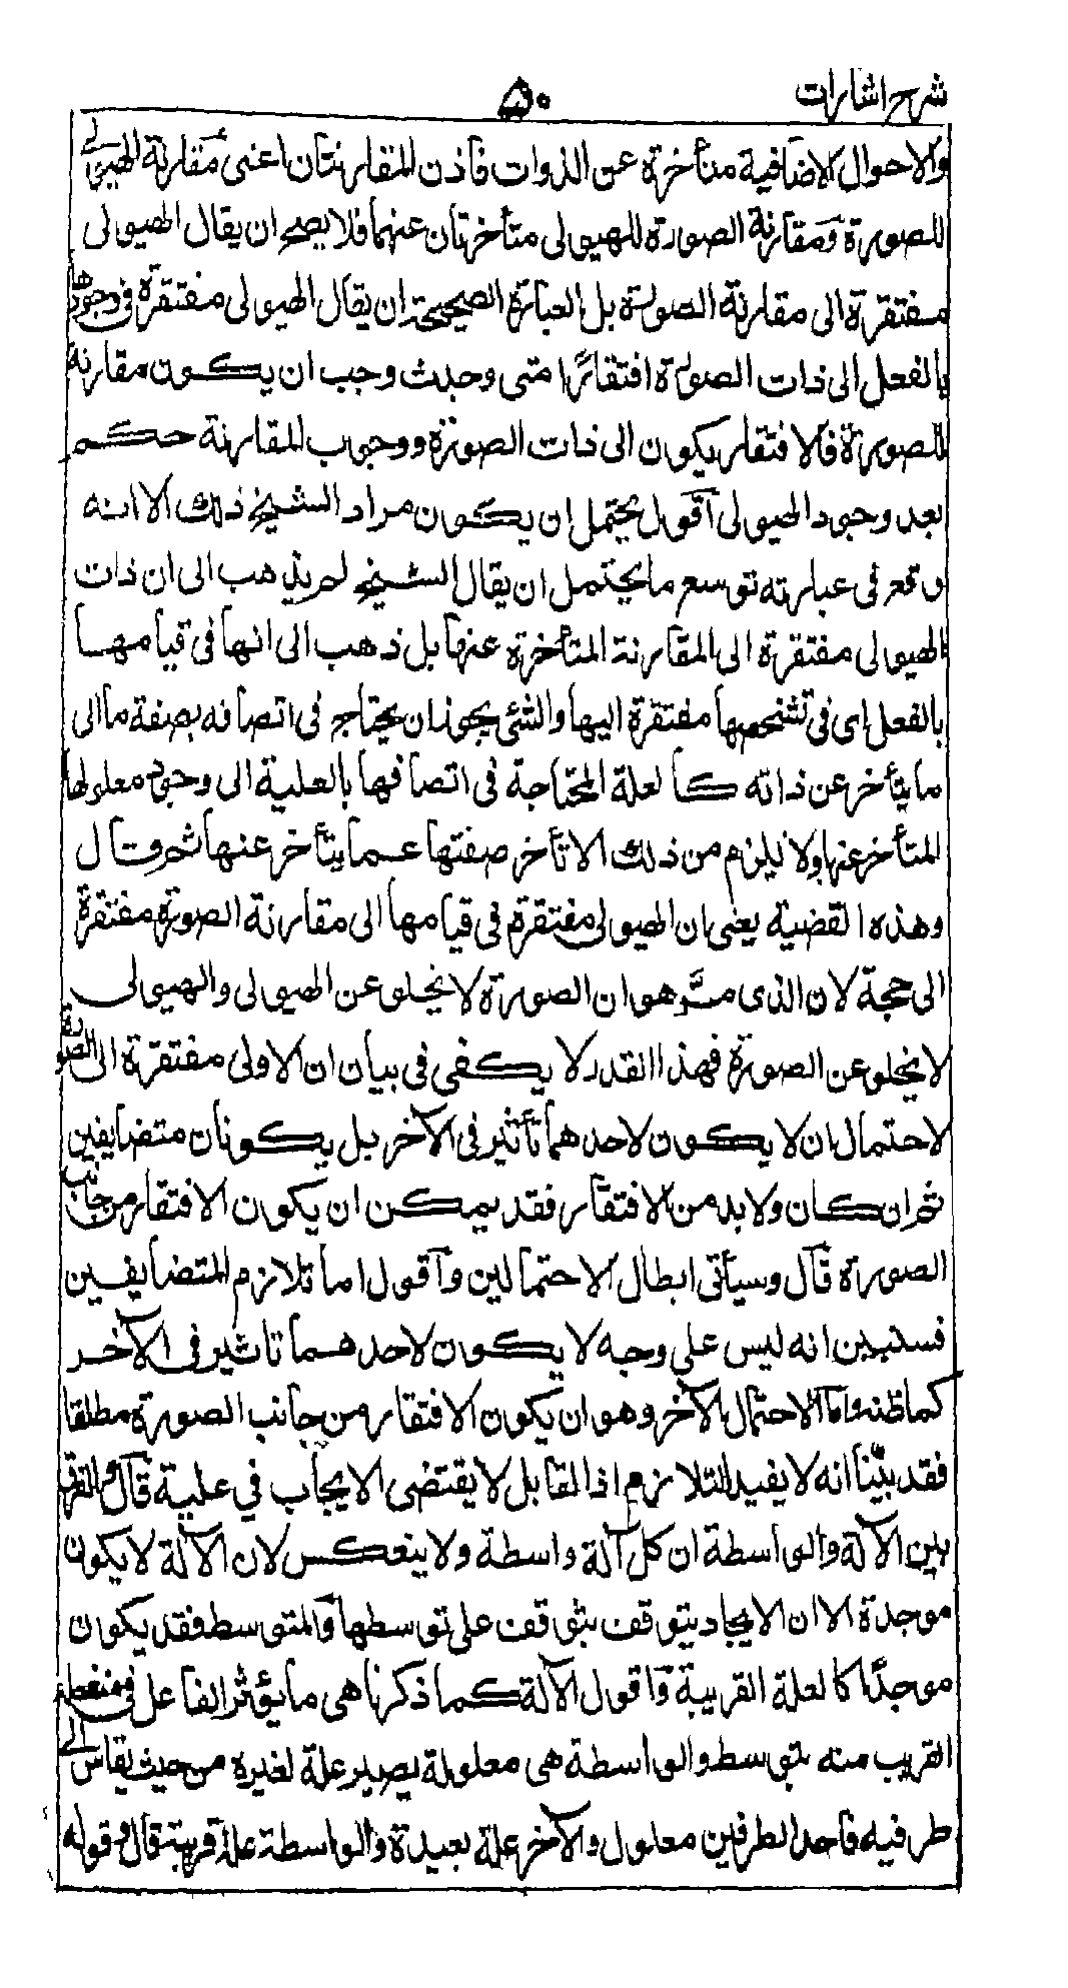 شرح اشارات
٥٠
والاحوال الاضافية متأخرة عن الذوات فاذن المقارنتان اعنى مقارنة الهيولى
للصورة ومقارنة الصورة للهيولى متأخرتان عنهما فلا يصح ان يقال الهيولى
مفتقرة الى مقارنة الصورة بل العبارة الصحيحة ان يقال الهيولى مفتقرة فى وجودها
بالفعل الى ذات الصورة افتقارًا متى وجدت وجب ان يكون مقارنة
للصورة فالافتقار يكون الى ذات الصورة ووجوب المقارنة حكم
بعد وجود الهيولى اقول يحتمل ان يكون مراد الشيخ ذلك الا انه
وقع فى عبارته توسع ما يحتمل ان يقال الشيخ لم يذهب الى ان ذات
الهيولى مفتقرة الى المقارنة المتأخرة عنها بل ذهب الى انها فى قيامها
بالفعل اى فى تشخصها مفتقرة اليها والشئ يجوز ان يحتاج فى اتصافه بصفة ما الى
ما يتأخر عن ذاته كالعلة المحتاجة فى اتصافها بالعلية الى وجود معلولها
المتأخر عنها ولا يلزم من ذلك الا تأخر صفتها عما يتأخر عنها ثم قال
وهذه القضية يعنى ان الهيولى مفتقرة فى قيامها الى مقارنة الصورة مفتقرة
الى حجة لان الذى مرّ هو ان الصورة لا يخلو عن الهيولى والهيولى
لا يخلو عن الصورة فهذا القدر لا يكفى فى بيان ان الاولى مفتقرة الى الصورة
لاحتمال ان لا يكون لاحدهما تأثير فى الآخر بل يكونان متضايفين
ثم ان كان ولا بد من الافتقار فقد يمكن ان يكون الافتقار من جانب
الصورة قال وسيأتى ابطال الاحتمالين واقول اما تلازم المتضايفين
فستبين انه ليس على وجه لا يكون لاحدهما تاثير فى الآخر
كما ظنه واما الاحتمال الآخر وهو ان يكون الافتقار من جانب الصورة مطلقا
فقد بيّنا انه لا يفيد التلازم اذ القابل لا يقتضى الايجاب في علية قال والفرق
بين الآلة والواسطة ان كل آلة واسطة ولا ينعكس لان الآلة لا يكون
موجدة الا ان الايجاد يتوقف يتوقف على توسطها والمتوسط فقد يكون
موجدًا كالعلة القريبة واقول الآلة كما ذكرنا هى ما يؤثر الفاعل فى منفعله
القريب منه بتوسط والواسطة هى معلولة يصير علة لغيره من حيث يقاس الى
طرفيه فاحد الطرفين معلول والآخر علة بعيدة والواسطة علة قريبة قال وقوله